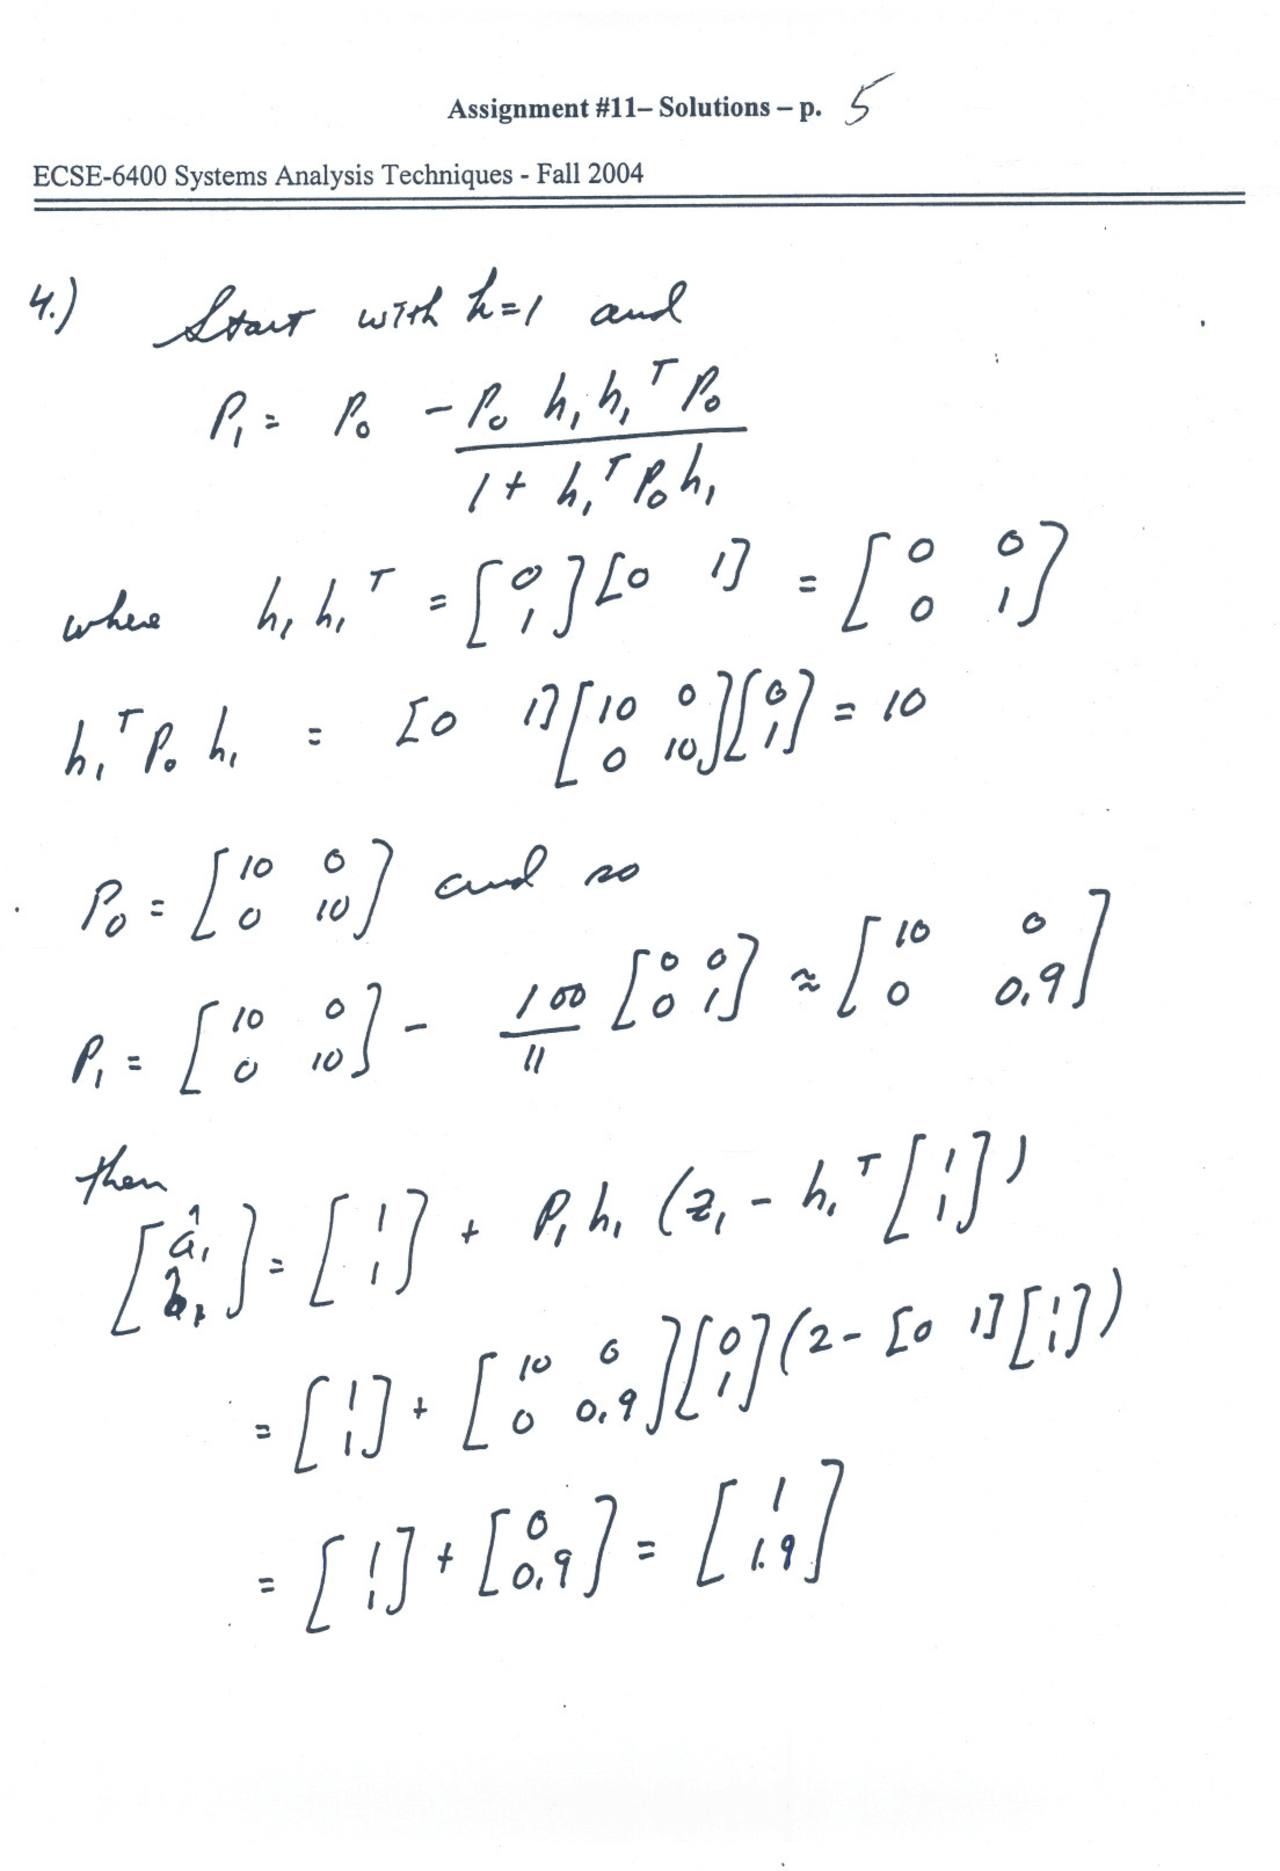 Assignment #11– Solutions – p. 5
ECSE-6400 Systems Analysis Techniques - Fall 2004
4.) Start with k=1 and
P₁ = P₀ - P₀ h₁ h₁ᵀ P₀ / 1 + h₁ᵀ P₀ h₁
where h₁ h₁ᵀ = [0; 1] [0 1] = [0 0; 0 1]
h₁ᵀ P₀ h₁ = [0 1] [10 0; 0 10] [0; 1] = 10
P₀ = [10 0; 0 10] and so
P₁ = [10 0; 0 10] - 100/11 [0 0; 0 1] ≈ [10 0; 0 0.9]
then
[â₁; b̂₁] = [1; 1] + P₁ h₁ (z₁ - h₁ᵀ [1; 1])
= [1; 1] + [10 0; 0 0.9] [0; 1] (2 - [0 1] [1; 1])
= [1; 1] + [0; 0.9] = [1; 1.9]